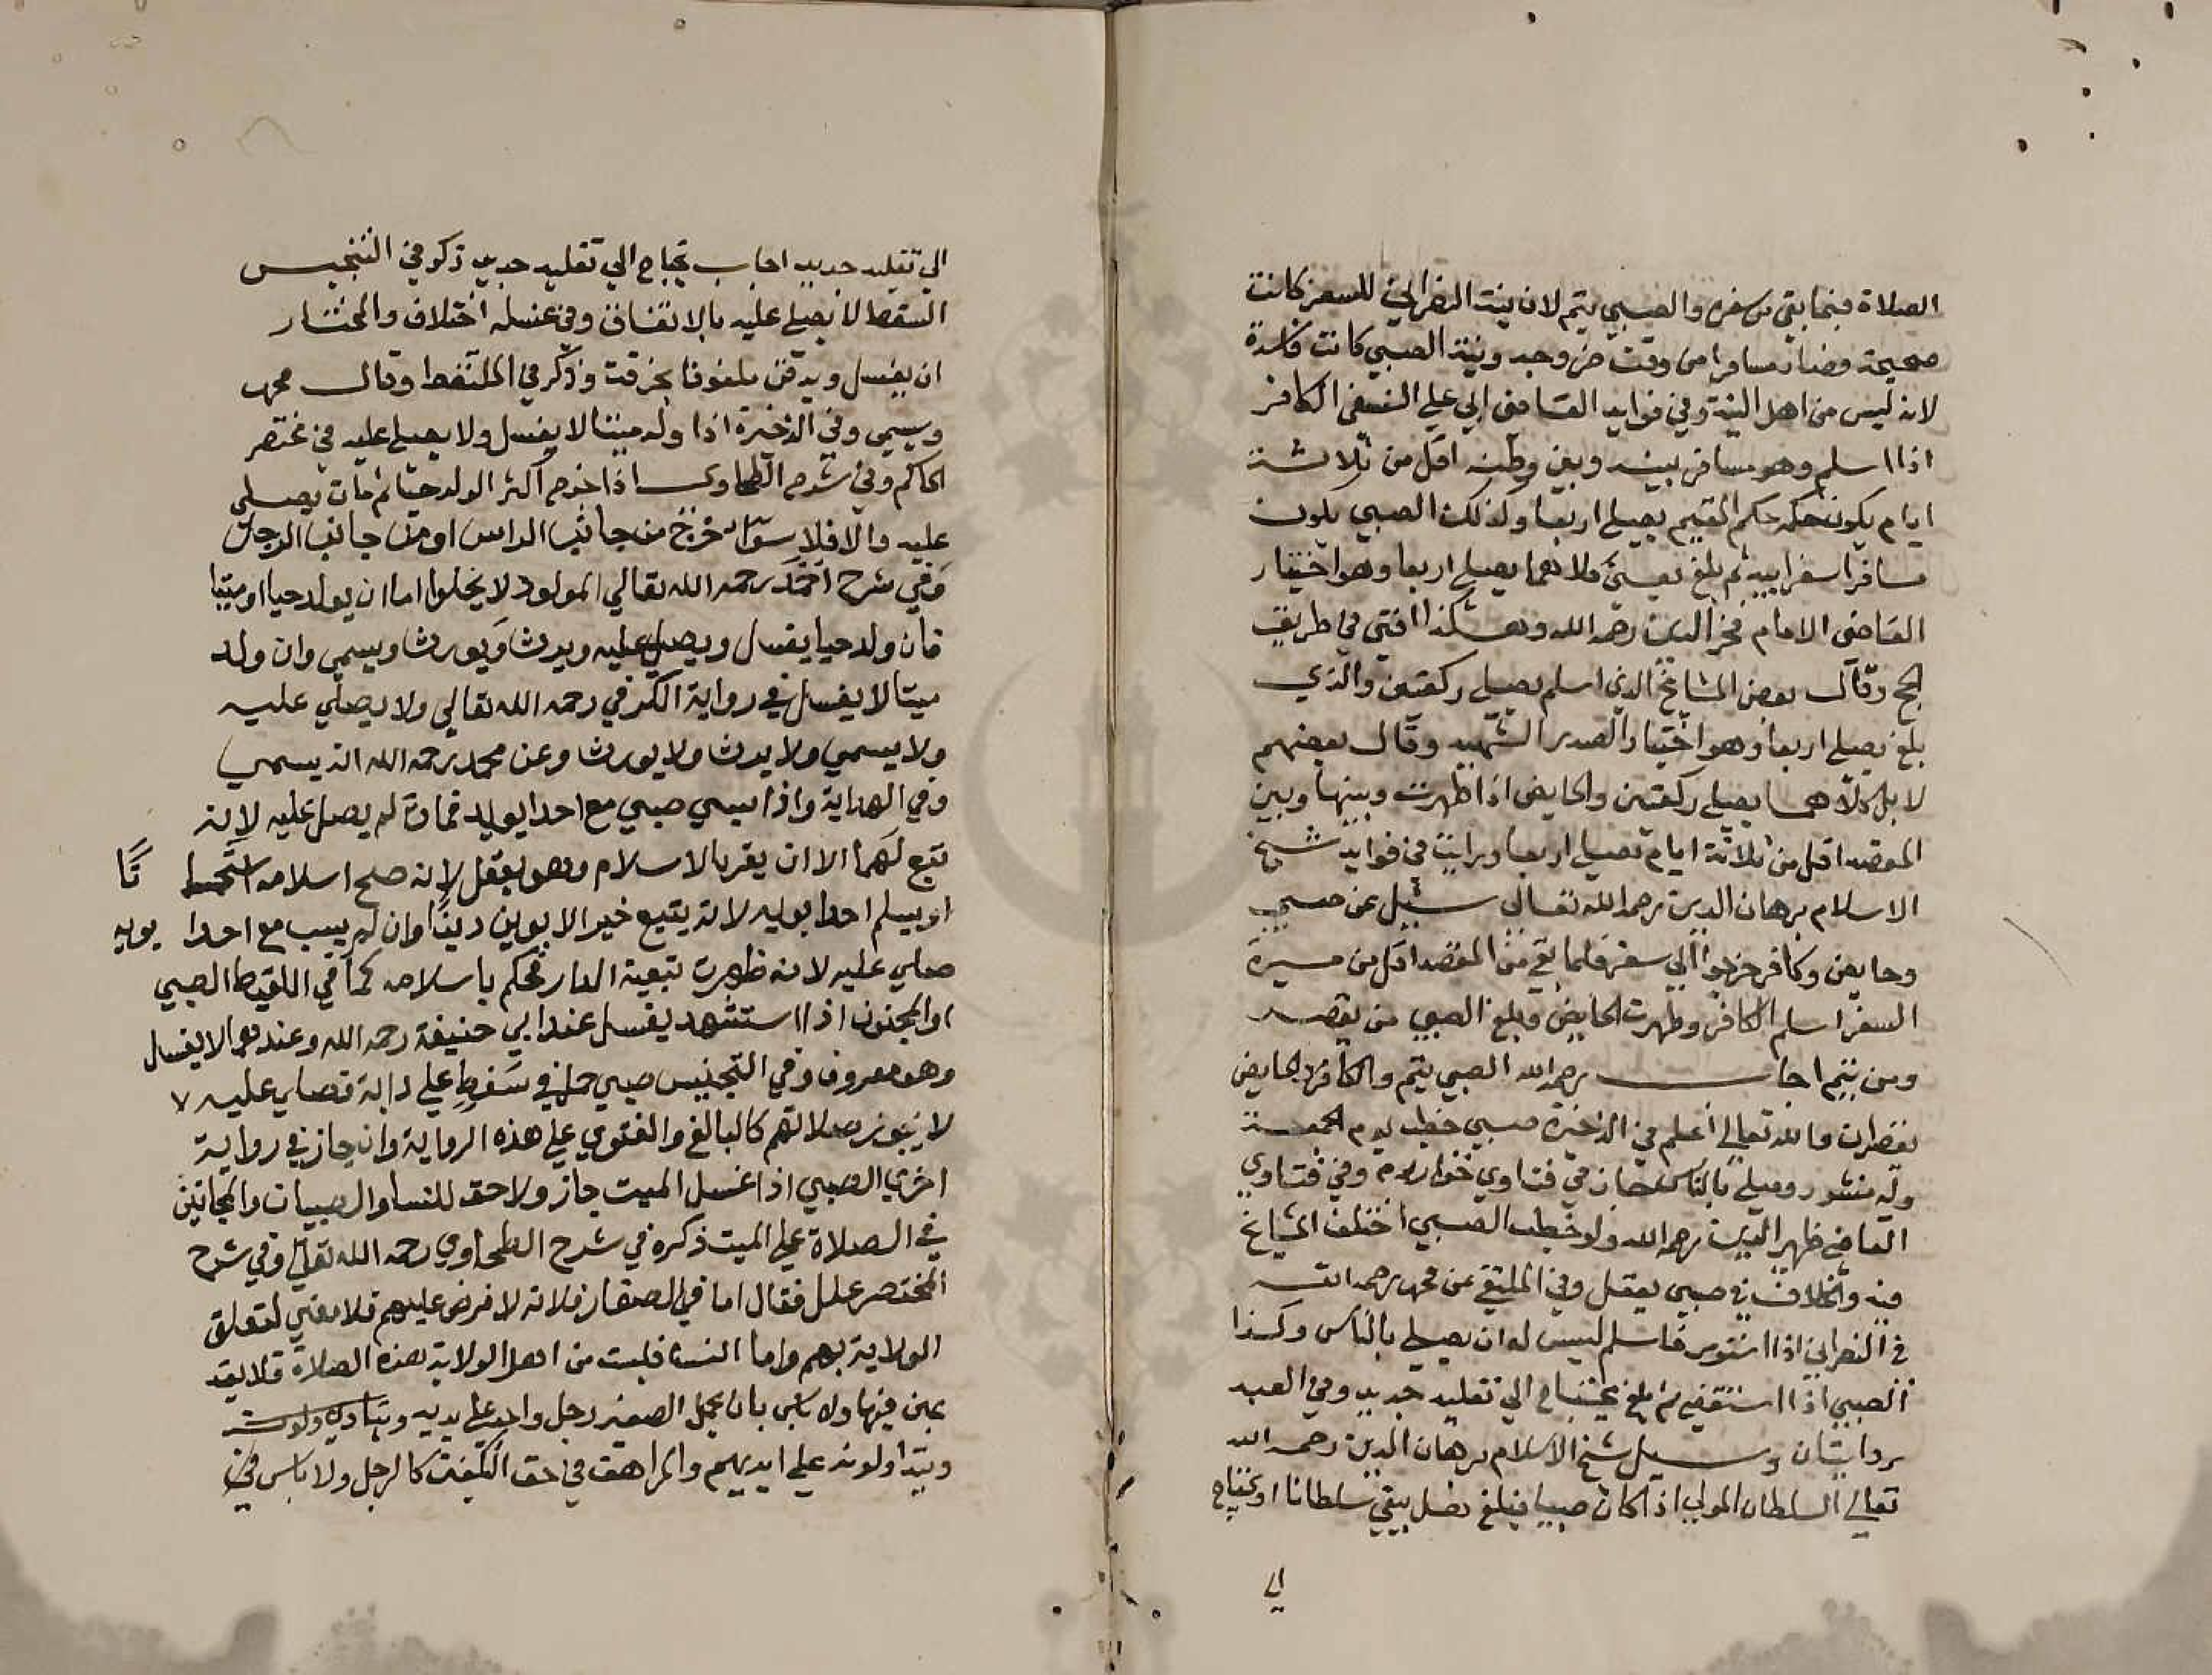 الصلاة فيما بقي من سفره والصبي يتم لان نية النصراني للسفر كانت
صحيحة فصار مسافرا من وقت خروجه ونية الصبي كانت فاسدة
لانه ليس من اهل النية وفي فوايد القاضي ابي علي النسفي الكافر
اذا اسلم وهو مسافر بينه وبين وطنه اقل من ثلاثة
ايام يكون حكمه حكم المقيم يصلي اربعا وكذلك الصبي يكون
مسافرا سفر ابيه ثم بلغ يعني كلاهما يصلي اربعا وهو اختيار
القاضي الامام فخر الدين رحمه الله وهكذا افتي في طريق
الحج وقال بعض المشايخ الذي اسلم يصلي ركعتين والذي
بلغ يصلي اربعا وهو اختيار الصدر الشهيد وقال بعضهم
لا بل كلاهما يصلي ركعتين والحايض اذا طهرت وبينها وبين
المقصد اقل من ثلاثة ايام تصلي اربعا ورايت في فوايد شيخ
الاسلام برهان الدين رحمه الله تعالى سئيل عن صبي
وحايض وكافر خرجوا الي سفر فلما بقي من المقصد اقل من مسيرة
السفر اسلم الكافر وطهرت الحايض وبلغ الصبي من يقصر
ومن يتم اجاب رحمه الله الصبي يتم والكافر والحايض
يقصران والله تعالي اعلم في الذخيرة صبي خطب يوم الجمعة
وله منشور وصلي بالناس جاز في فتاوي خوارزم وفي فتاوي
القاضي ظهير الدين رحمه الله ولو خطب الصبي اختلف المشايخ
فيه والخلاف في صبي يعقل وفي الملتقي عن محمد رحمه الله
في النصراني اذا استومر فاسلم ليس له ان يصلي بالناس وكذا
الصبي اذا استقضي ثم بلغ يحتاج الي تقليد جديد وفي العبد
روايتان وسيل شيخ الاسلام برهان الدين رحمه الله
تعالي السلطان المولي اذا كان صبيا فبلغ هل يبقي سلطانا او يحتاج
الي
الي تقليد جديد اجاب يحتاج الي تقليد جديد ذكره في التنجيس
السقط لا يصلي عليه بالاتفاق وفي غسله اختلاف والمختار
ان يغسل ويدفن ملفوفا بخرقة وذكر في الملتقط وقال محمد
ويسمي وفي الذخيرة اذا ولد ميتا لا يغسل ولا يصلي عليه في مختصر
الحاكم وفي شرح الطحاوي اذا خرج اكثر الولد حيا ثم مات يصلي
عليه والا فلا سواء خرج من جانب الراس او من جانب الرجل
وفي شرح احمد رحمه الله تعالي المولود لا يخلوا اما ان يولد حيا او ميتا
فان ولد حيا يغسل ويصلي عليه ويرث ويورث ويسمي وان ولد
ميتا لا يغسل في رواية الكرخي رحمه الله تعالي ولا يصلي عليه
ولا يسمي ولا يرث ولا يورث وعن محمد رحمه الله انه يسمي
وفي الهداية واذا سبي صبي مع احد ابويه فمات لم يصل عليه لانه
تبع لهما الا ان يقر بالاسلام وهو يعقل لانه صح اسلامه استحسا نا
او يسلم احد ابويه لانه يتبع خير الابوين دينا وان لم يسب مع احد ا بويه
صلي عليه لانه ظهرت تبعية الدار فحكم باسلامه كما في اللقيط الصبي
او المجنون اذا استشهد يغسل عند ابي حنيفة رحمه الله وعندهما لا يغسل
وهو معروف وفي التجنيس صبي حمل في سفط علي دابة فصلي عليه
لا يجوز صلاتهم كالبالغ والفتوي علي هذه الرواية وان جاز في رواية
اخري الصبي اذا غسل الميت جاز ولا حق للنسا والصبيان والمجانين
في الصلاة علي الميت ذكره في شرح الطحاوي رحمه الله تعالي وفي شرح
المختصر علل فقال اما في الصغار فلانه لا فرض عليهم فلا معني لتعلق
الولاية بهم واما النسا فليست من اهل الولاية بهذه الصلاة فلا يقد
بهن فيها ولا باس بان يحمل الصغير رجل واحد علي يديه
ويتداولونه علي ايديهم والمراهق في حق التكفين كالرجل ولا باس في